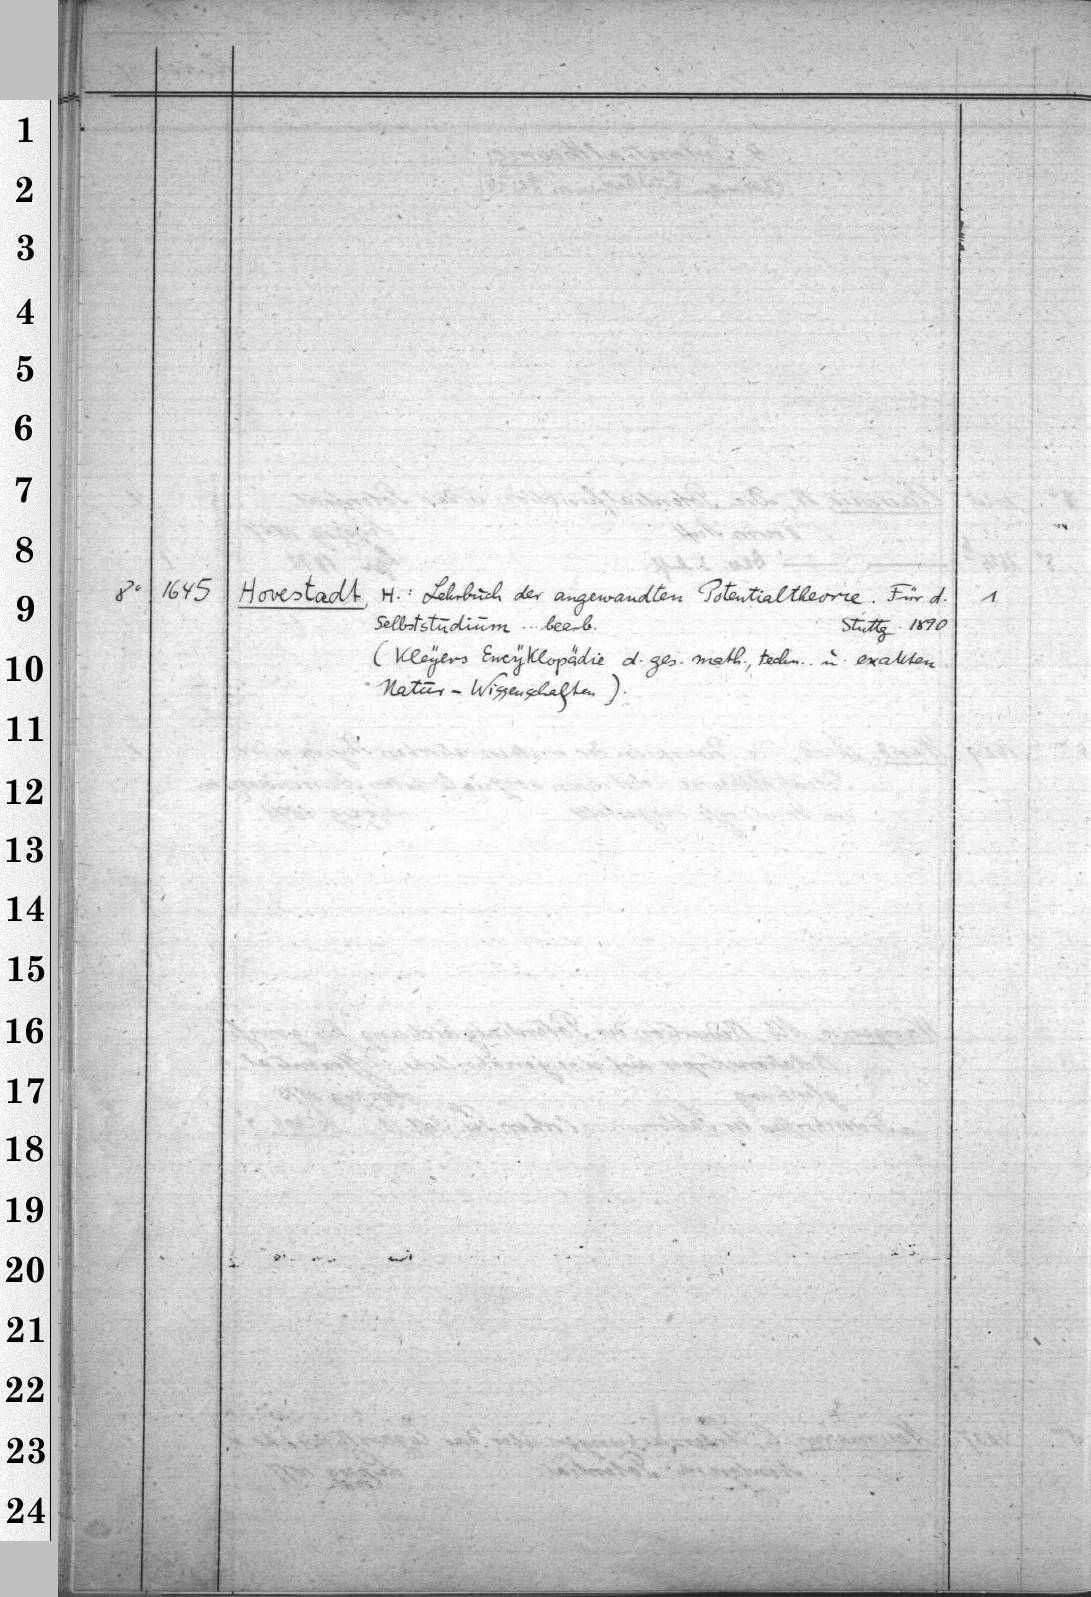 1
2
3
4
5
6
7
8
9
10
11
12
13
14
15
16
17
18
19
20
21
22
23
24
8° 1645 Hovestadt, H.: Lehrbuch der angewandten Potentialtheorie. Für d. 1
Selbststudium ... bearb. Stuttg. 1890
(Kleyers Encyklopädie d. ges. math., techn. u. exakten
Natur-Wissenschaften).